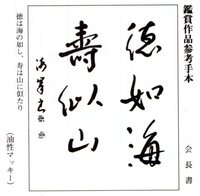 鑑賞作品参考手本
会長書
徳如海
壽似山
徳は海の如し、寿は山に似たり
(油性マッキー)